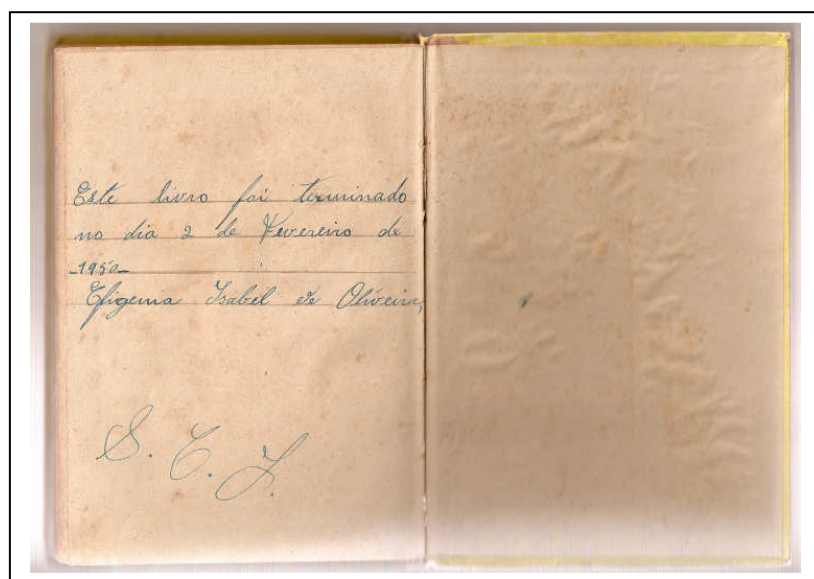 Este livro foi terminado
no dia 2 de Fevereiro de
-1950-
Efigenia Isabel de Oliveira,
S. C. J.